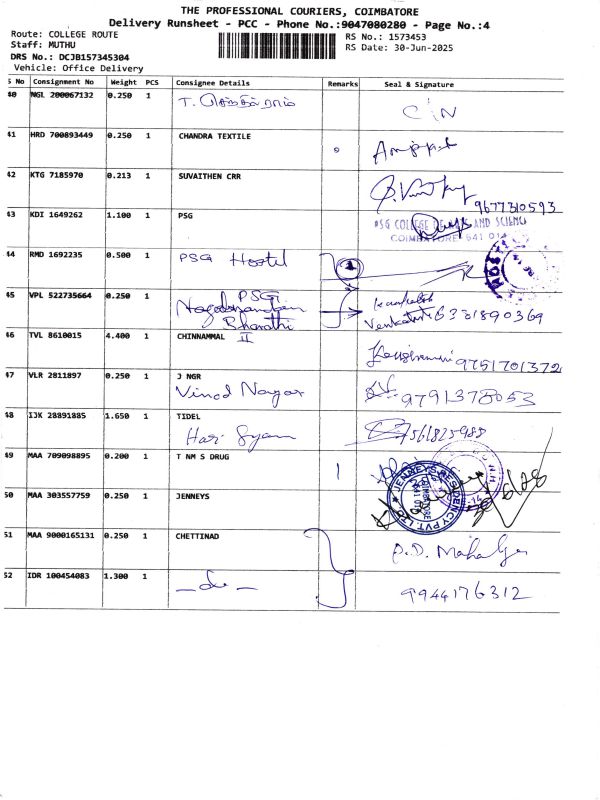 THE PROFESSIONAL COURIERS, COIMBATORE
Delivery Runsheet - PCC - Phone No.:9047080280 - Page No.:4
Route: COLLEGE ROUTE
RS No.: 1573453
Staff: MUTHU
RS Date: 30-Jun-2025
DRS No.: DCJB157345304
Vehicle: Office Delivery
S No Consignment No Weight PCS Consignee Details Remarks Seal & Signature
40 NGL 200067132 0.250 1 T.
41 HRD 700893449 0.250 1 CHANDRA TEXTILE
42 KTG 7185970 0.213 1 SUVAITHEN CRR
9677310593
43 KDI 1649262 1.100 1 PSG
PSG COLLEGE OF ARTS AND SCIENCE
COIMBATORE 641 014
44 RMD 1692235 0.500 1 PSG Hostel
45 VPL 522735664 0.250 1 PSG
Bharathi
6381890369
46 TVL 8610015 4.400 1 CHINNAMMAL II
9751701372
47 VLR 2811897 0.250 1 J NGR
Vinod Nagar 9791378053
48 IJK 28891885 1.650 1 TIDEL
Hari Syam 7561825988
49 MAA 709098895 0.200 1 T NM S DRUG
50 MAA 303557759 0.250 1 JENNEYS
JENNEYS RESIDENCY PVT. LTD.
COIMBATORE
641 014
51 MAA 9000165131 0.250 1 CHETTINAD
52 IDR 100454083 1.300 1 -do-
9944176312